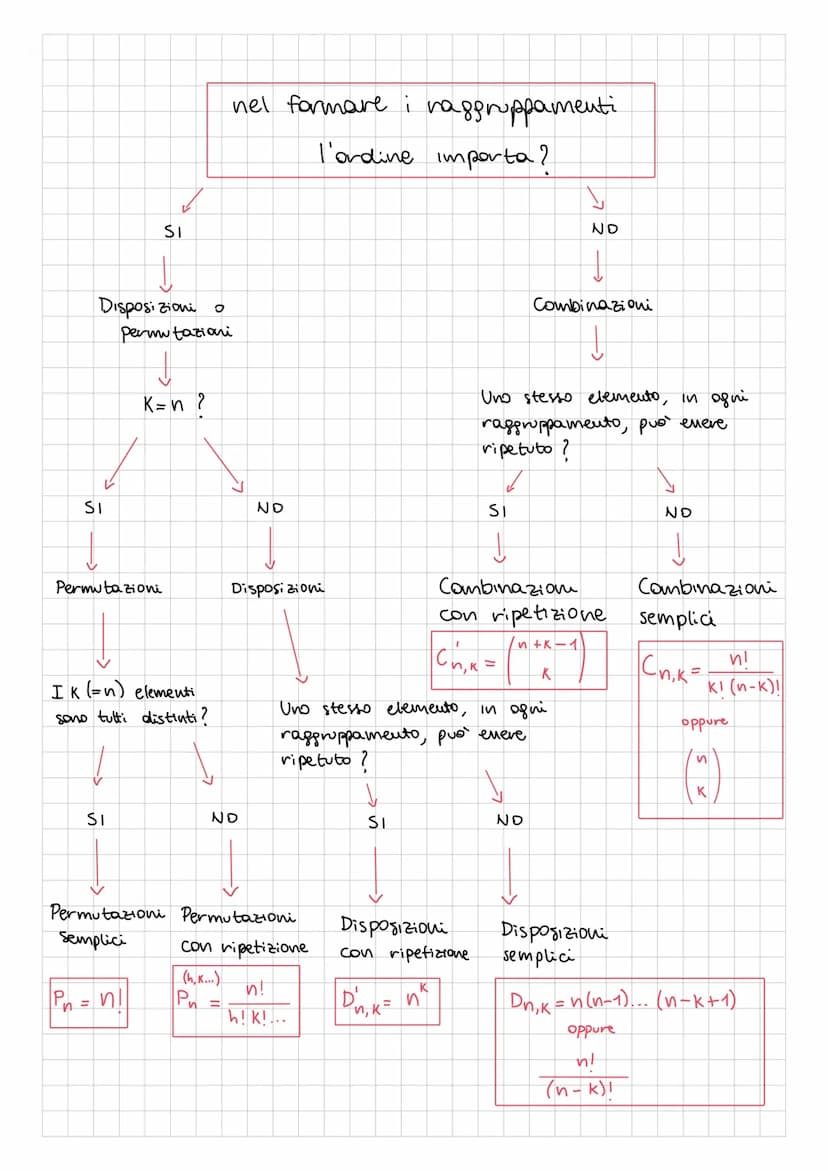 nel formare i raggruppamenti
l'ordine importa?
SI
NO
Disposizioni o
permutazioni
Combinazioni
K=n ?
Uno stesso elemento, in ogni
raggruppamento, può essere
ripetuto ?
SI
NO
SI
NO
Permutazioni
Disposizioni
Combinazioni
con ripetizione
C'n,K = (n+K-1 K)
Combinazioni
semplici
Cn,K = n! / K! (n-K)!
oppure
(n K)
I K (=n) elementi
sono tutti distinti?
Uno stesso elemento, in ogni
raggruppamento, può essere
ripetuto ?
SI
NO
SI
NO
Permutazioni
semplici
Pn = n!
Permutazioni
con ripetizione
Pn (h,K...) = n! / h! K! ...
Disposizioni
con ripetizione
D'n,K = n^K
Disposizioni
semplici
Dn,K = n(n-1)... (n-K+1)
oppure
n! / (n-K)!